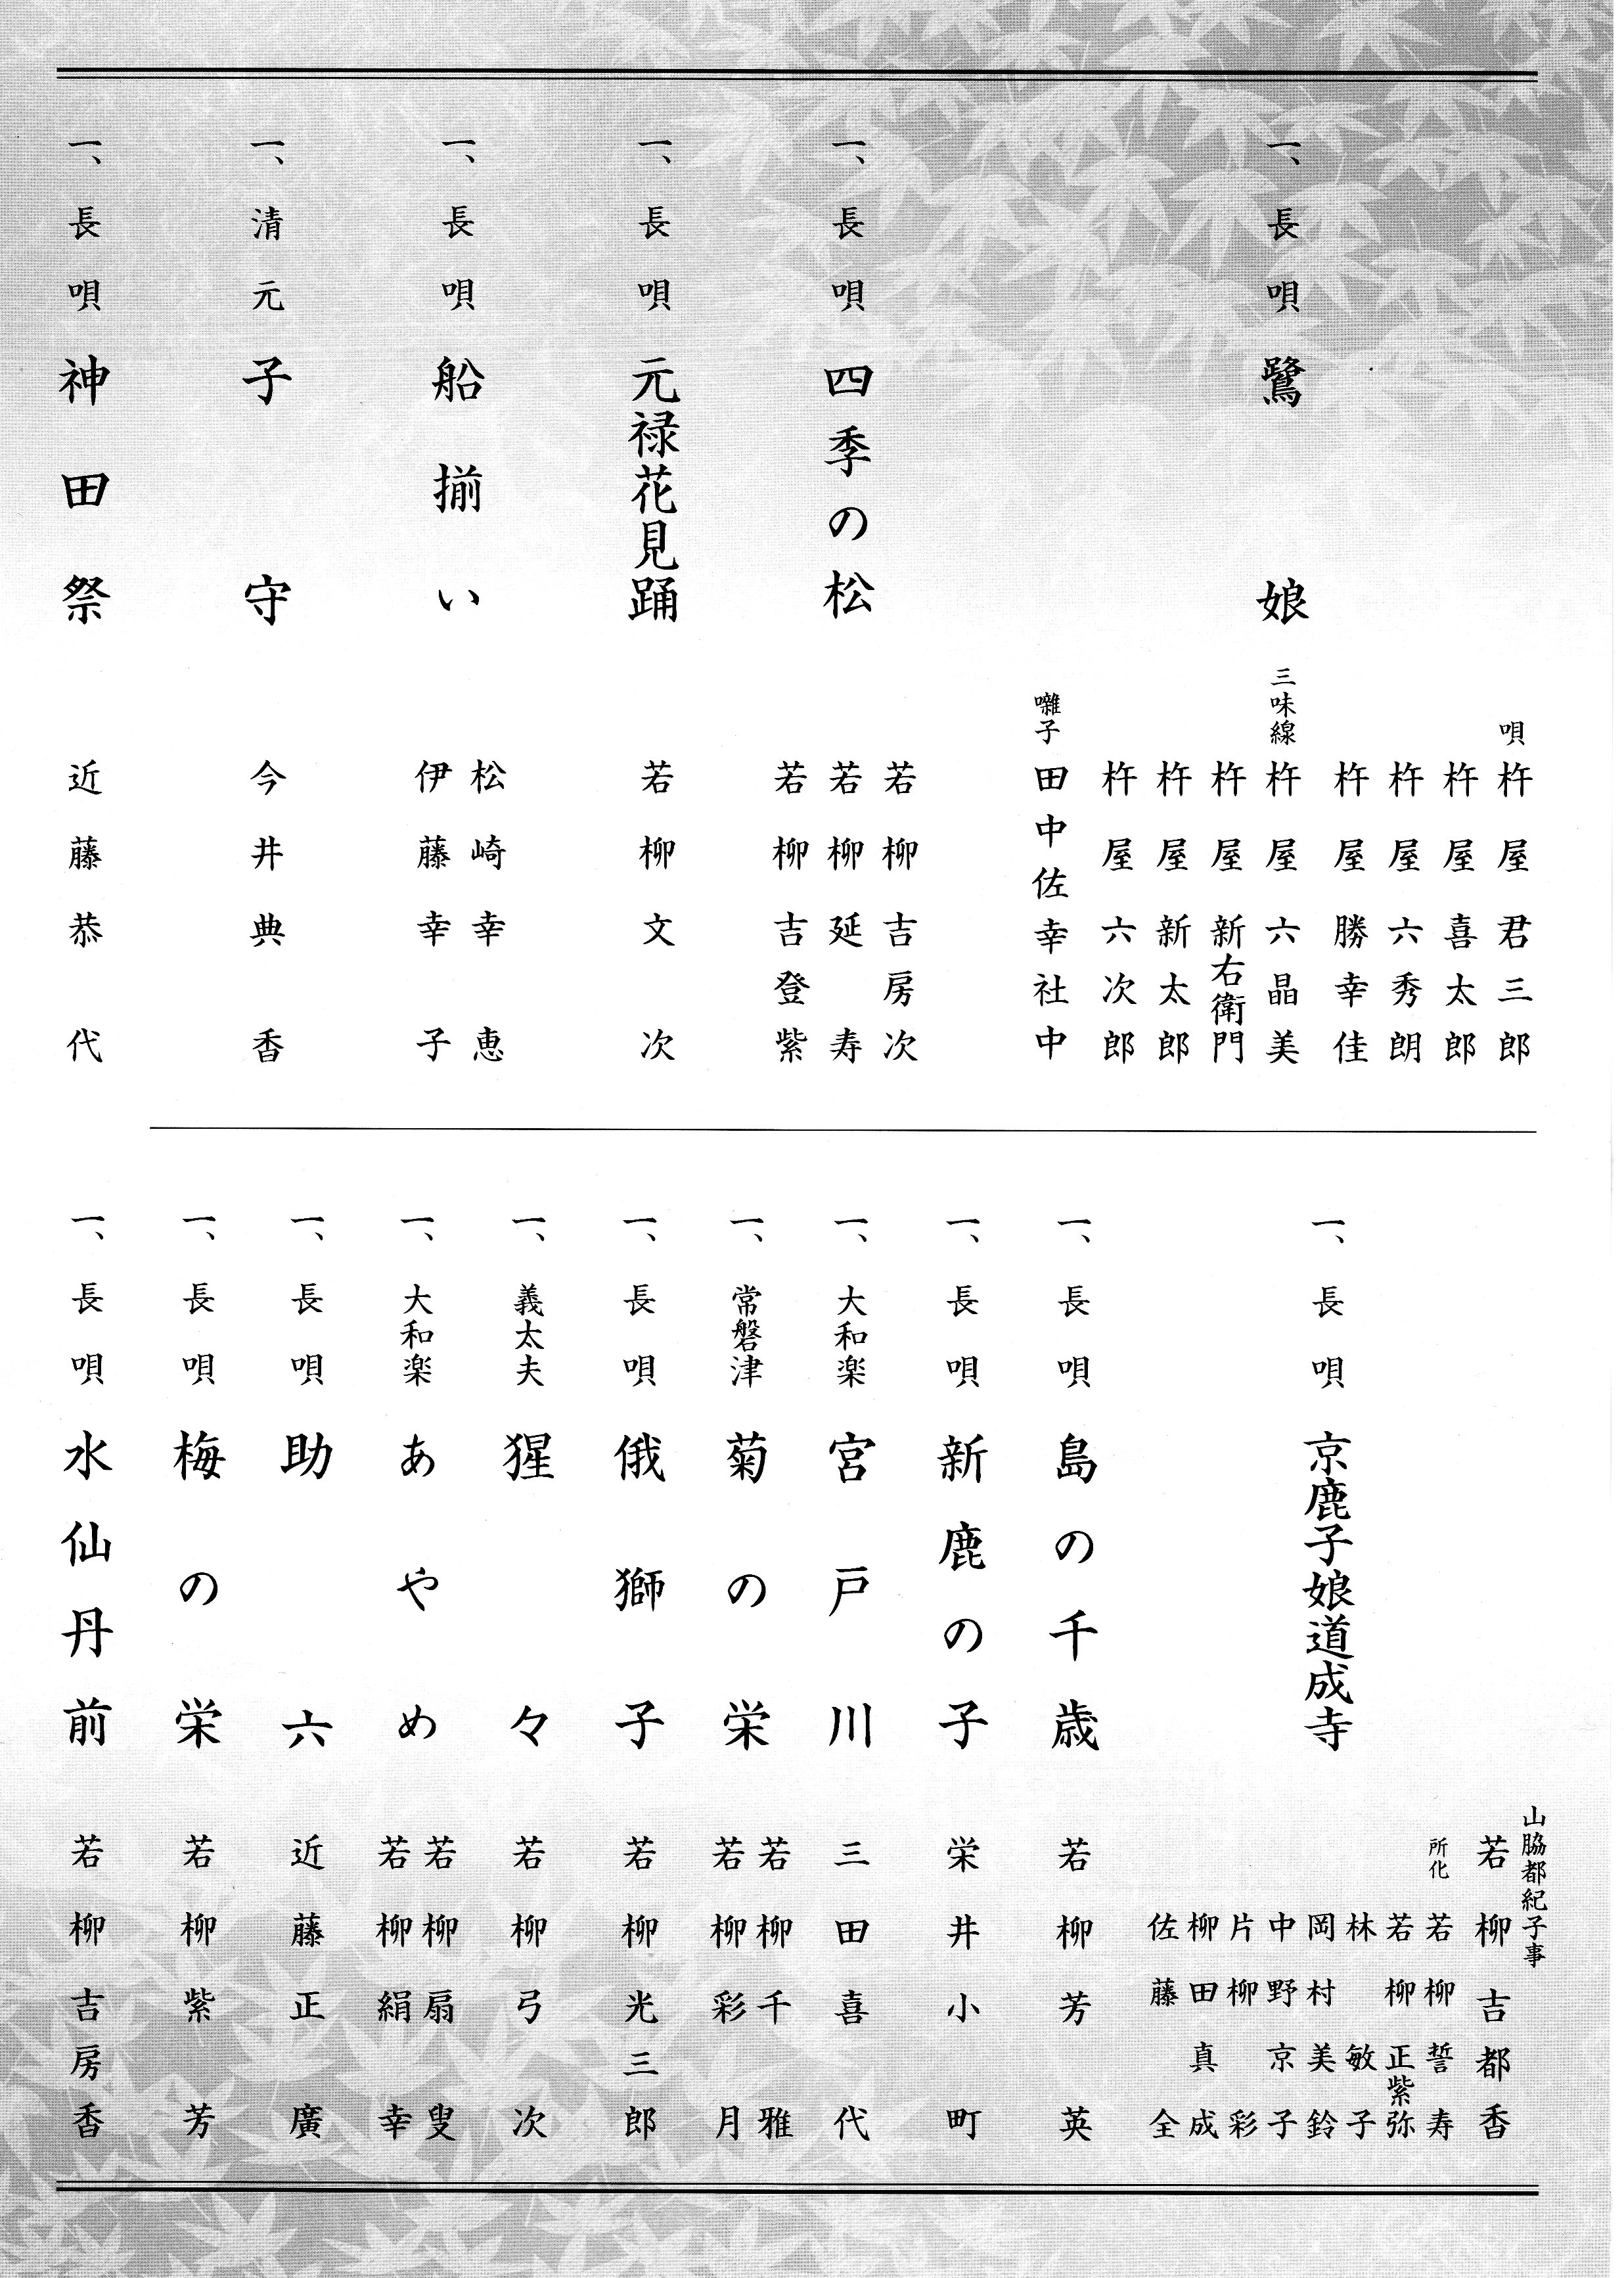 唄 杵屋君三郎
杵屋喜太郎
杵屋六秀朗
杵屋勝幸佳
一、長唄 鷺娘
三味線 杵屋六晶美
杵屋新右衛門
杵屋新太郎
杵屋六次郎
囃子 田中佐幸社中
一、長唄 四季の松
若柳吉房次
若柳延寿
若柳吉登紫
一、長唄 元禄花見踊 若柳文次
一、長唄 船揃い
松崎幸恵
伊藤幸子
一、清元 子守 今井典香
一、長唄 神田祭 近藤恭代
一、長唄 京鹿子娘道成寺
山脇都紀子事
若柳吉都香
所化 若柳誓寿
若柳正紫弥
林敏子
岡村美鈴
中野京子
片柳彩
柳田真成
佐藤全
一、長唄 島の千歳 若柳芳英
一、長唄 新鹿の子 栄井小町
一、大和楽 宮戸川 三田喜代
一、常磐津 菊の栄
若柳千雅
若柳彩月
一、長唄 俄獅子 若柳光三郎
一、義太夫 猩々 若柳弓次
一、大和楽 あやめ
若柳扇叟
若柳絹幸
一、長唄 助六 近藤正廣
一、長唄 梅の栄 若柳紫芳
一、長唄 水仙丹前 若柳吉房香